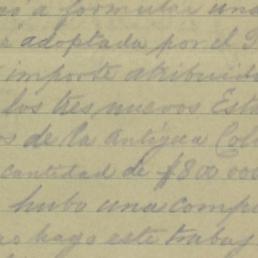 a formular una
adoptada por el
importe atribuido
los tres nuevos Est
os de la antigua Col
cantidad de $800 000
hubo una comp
hago este trabaj